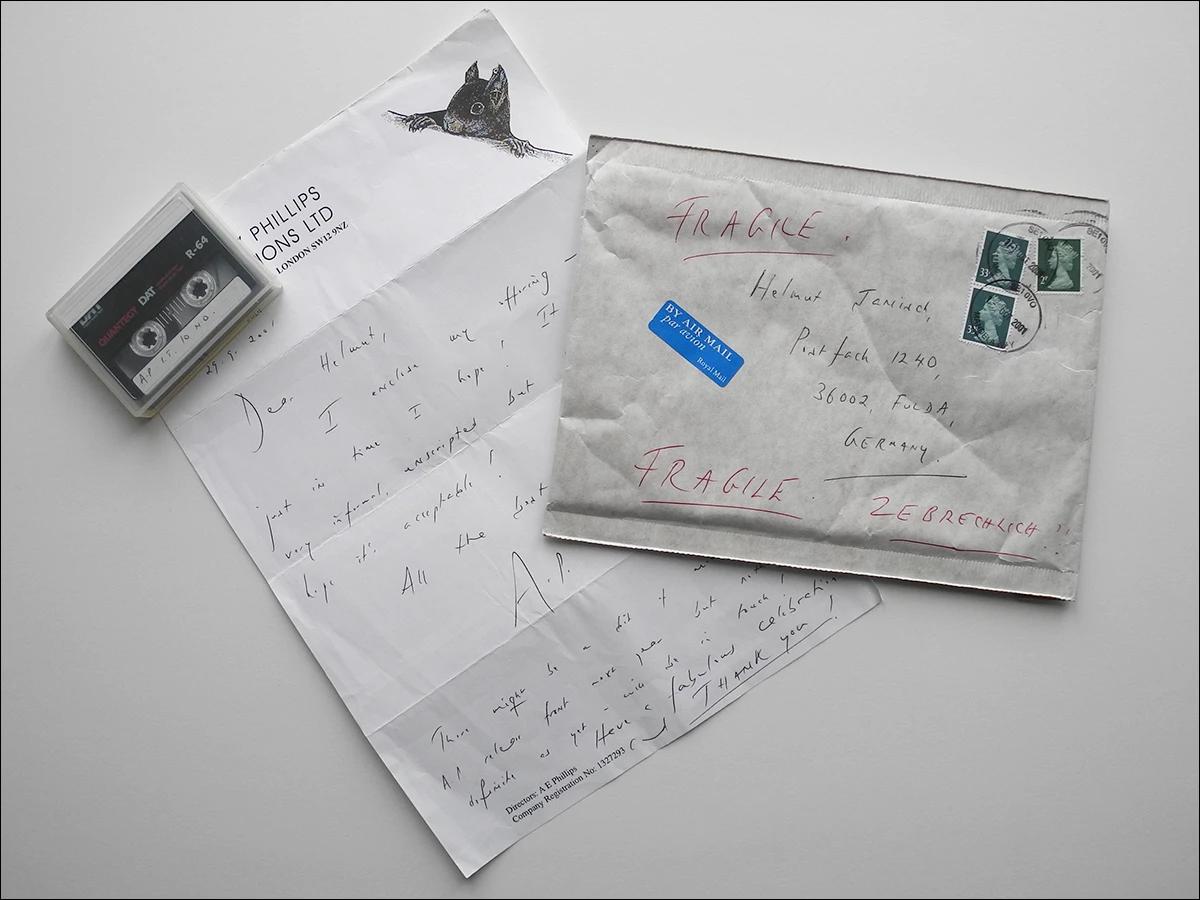 PHILLIPS
IONS LTD
LONDON SW12 9NZ
QUANTEGY DAT
R-64
A.P I.T. 10 NO.
29.9.2001
Dear Helmut,
I enclose my offering –
just in time I hope! It
very informal, unscripted but
hope it's acceptable!
All the best
A.P.
There might be a bit of
A.P release front next year but
definite as yet – will be in touch!
Have a fabulous celebration
THANK YOU!
Directors: A E Phillips
Company Registration No: 1327293
FRAGILE.
Helmut Janisch,
Postfach 1240,
36002, FULDA,
GERMANY.
BY AIR MAIL
par avion
Royal Mail
33
2001
FRAGILE.
ZEBRECHLICH!!